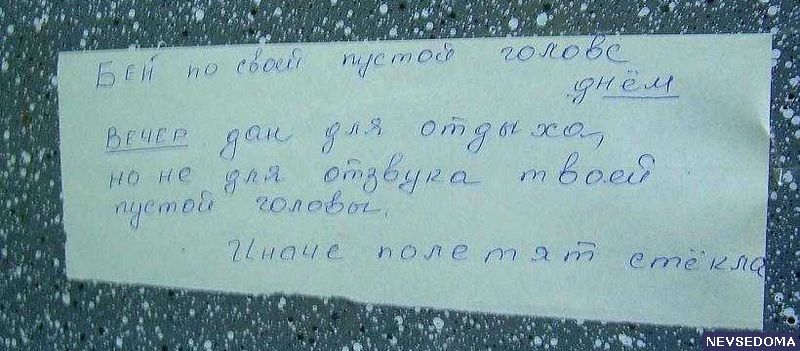 Бей по своей пустой голове
днём
Вечер дан для отдыха,
но не для отзвука твоей
пустой головы.
Иначе полетят стёкла
NEVSEDOMA